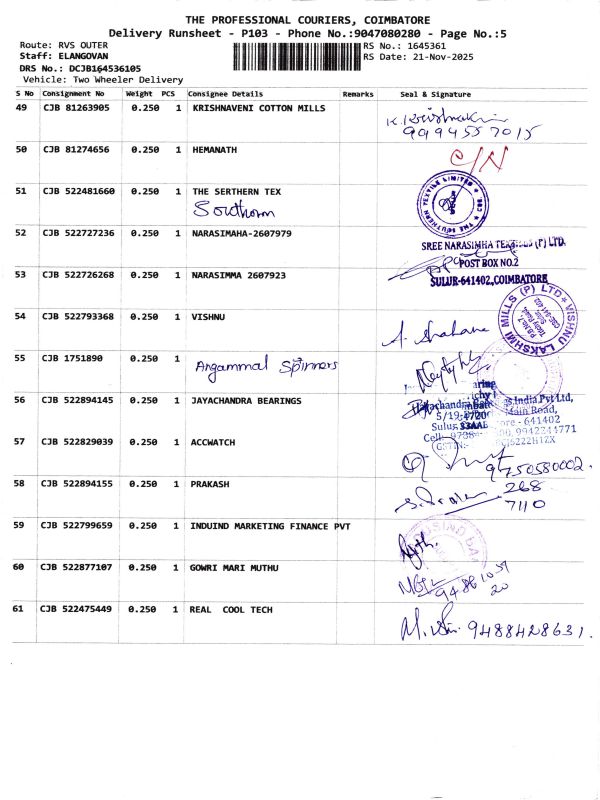 THE PROFESSIONAL COURIERS, COIMBATORE
Delivery Runsheet - P103 - Phone No.:9047080280 - Page No.:5
Route: RVS OUTER
RS No.: 1645361
Staff: ELANGOVAN
RS Date: 21-Nov-2025
DRS No.: DCJB164536105
Vehicle: Two Wheeler Delivery
S No Consignment No Weight PCS Consignee Details Remarks Seal & Signature
49 CJB 81263905 0.250 1 KRISHNAVENI COTTON MILLS
9994557015
50 CJB 81274656 0.250 1 HEMANATH
C/N
51 CJB 522481660 0.250 1 THE SERTHERN TEX
Southern
52 CJB 522727236 0.250 1 NARASIMAHA-2607979
SREE NARASIMHA TEXTILES (P) LTD.
POST BOX NO.2
SULUR-641402, COIMBATORE
53 CJB 522726268 0.250 1 NARASIMMA 2607923
54 CJB 522793368 0.250 1 VISHNU
VISHNU LAKSHMI MILLS (P) LTD
55 CJB 1751890 0.250 1 Angammal Spinners
56 CJB 522894145 0.250 1 JAYACHANDRA BEARINGS
Jayachandra Bearings India Pvt Ltd,
Main Road,
57 CJB 522829039 0.250 1 ACCWATCH
9750580002.
58 CJB 522894155 0.250 1 PRAKASH
268
7110
59 CJB 522799659 0.250 1 INDUIND MARKETING FINANCE PVT
60 CJB 522877107 0.250 1 GOWRI MARI MUTHU
61 CJB 522475449 0.250 1 REAL COOL TECH
9488428631.